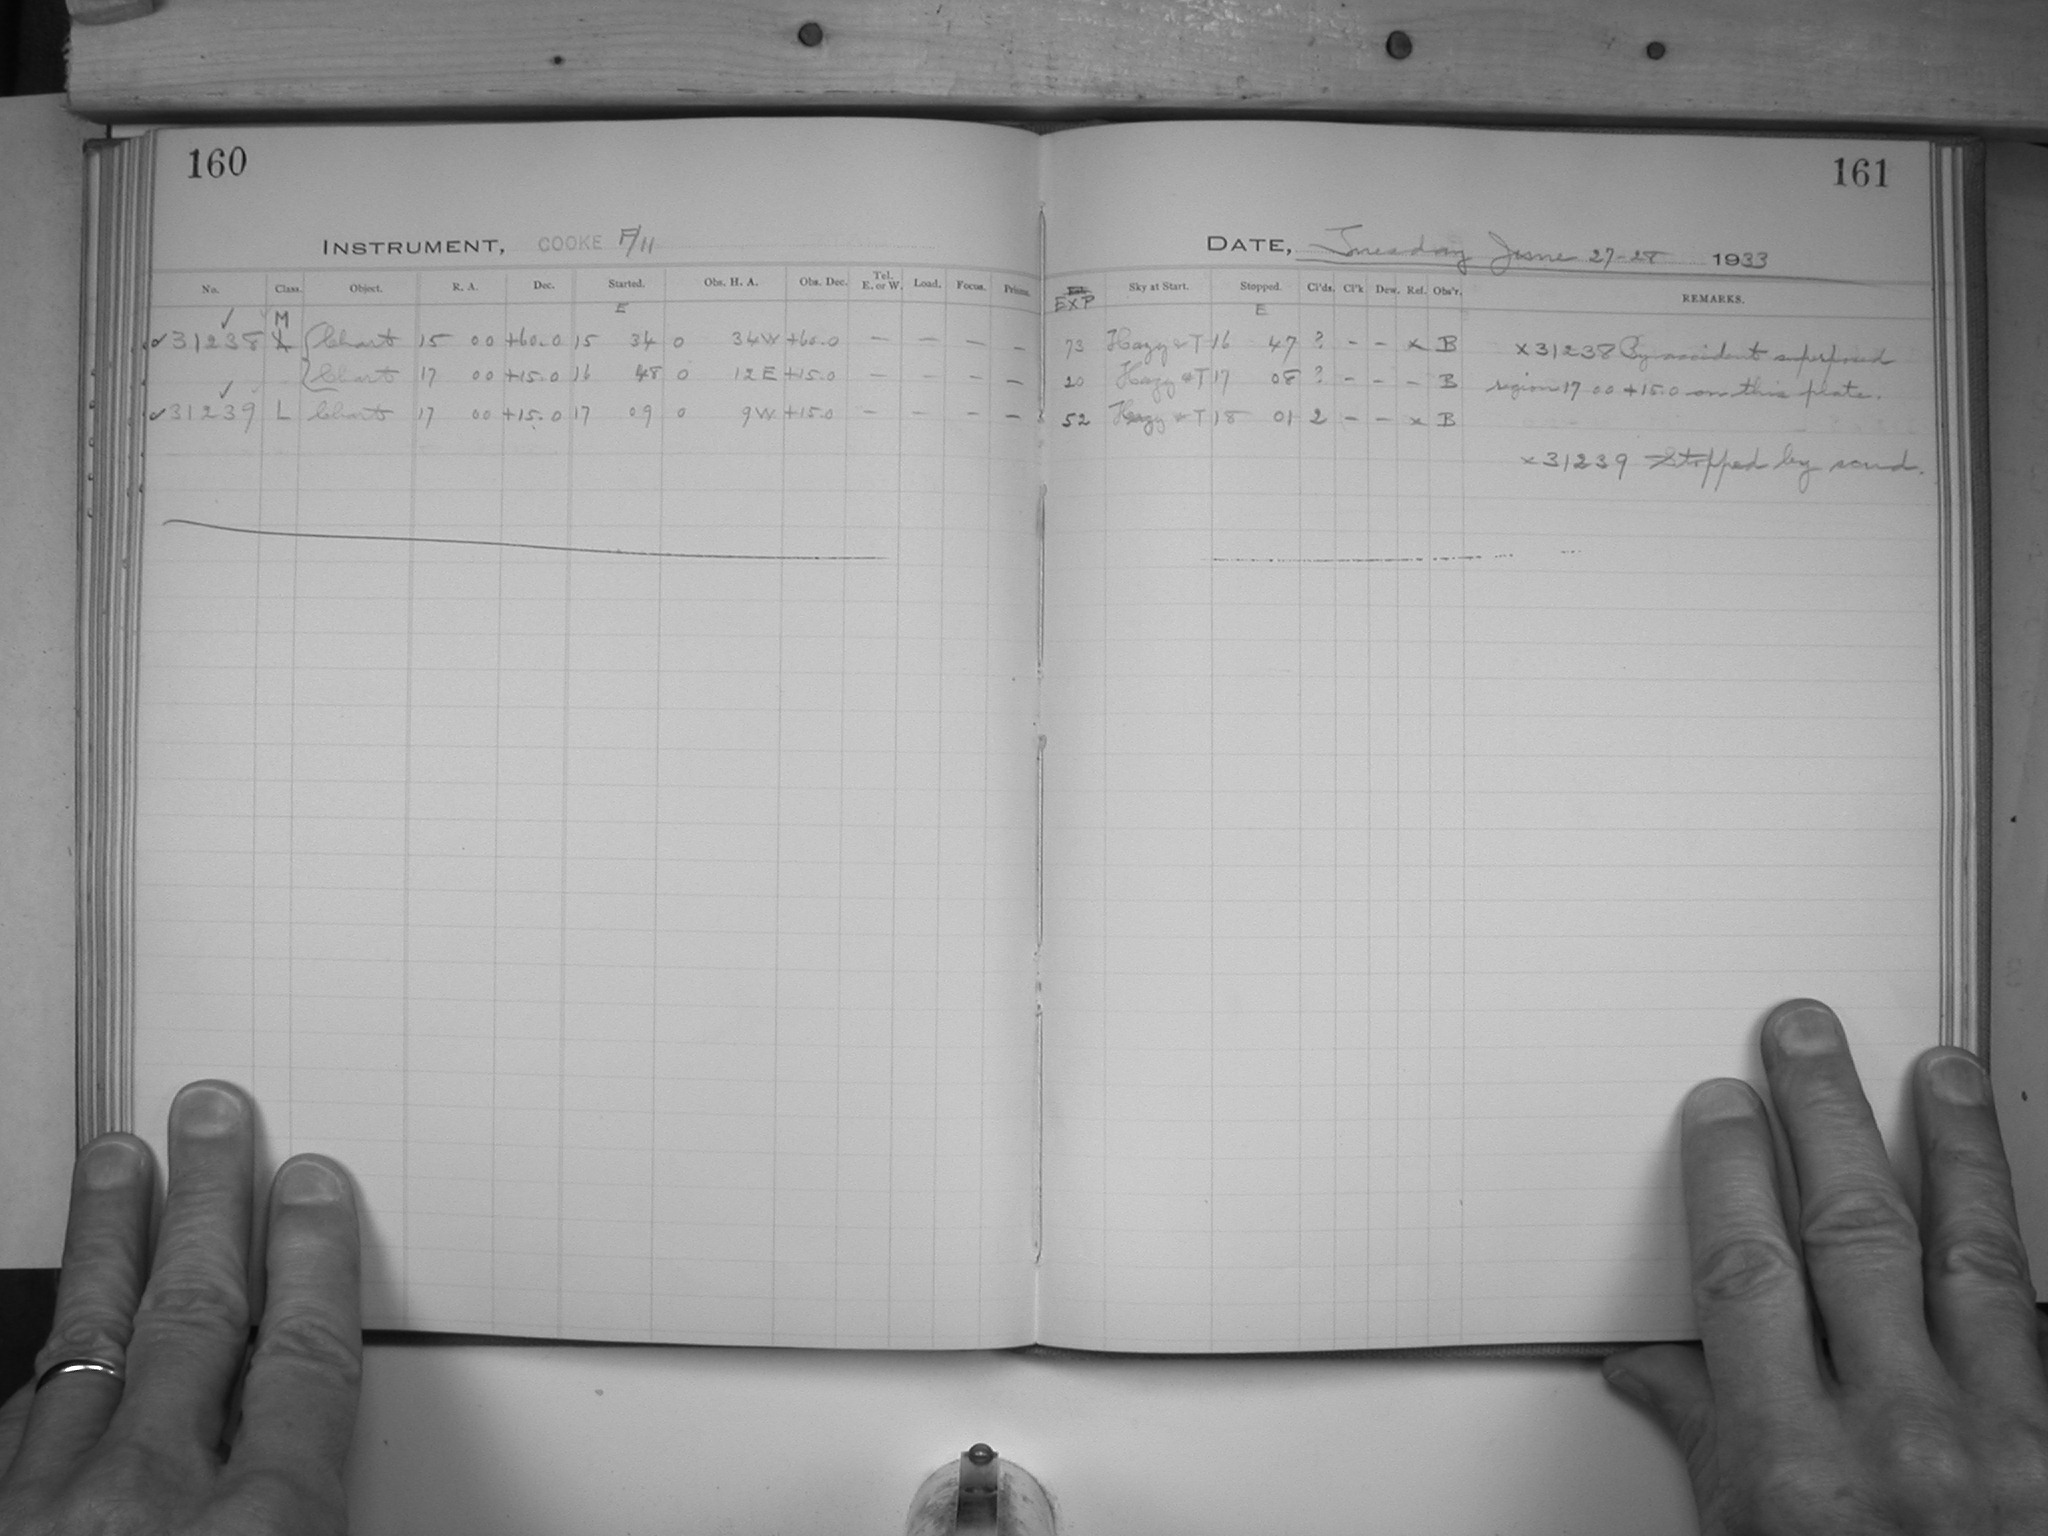 160
161
INSTRUMENT, COOKE F/11
DATE, Tuesday June 27-28 1933
No. Class. Object. R. A. Dec. Started. Obs. H. A. Obs. Dec. Tel. E. or W. Load. Focus. Prisms. EXP Sky at Start. Stopped. Cl'ds. Cl'k Dew. Ref. Obs'r. REMARKS.
E E
✓ M
✓31238 L Chart 15 00 +60.0 15 34 0 34W +60.0 — — — — 73 Hazy & T 16 47 ? - - x B x31238 By accident superposed
Chart 17 00 +15.0 16 48 0 12E +15.0 — — — — 20 Hazy & T 17 08 ? - - - B region 17 00 +15.0 on this plate.
✓
✓31239 L Chart 17 00 +15.0 17 09 0 9W +15.0 — — — — 52 Hazy & T 18 01 2 - - x B
x31239 Stopped by scud.